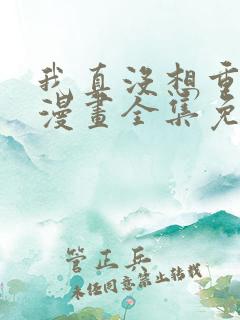 我真没想重
漫畫全集免
管正兵
未经同意禁止转载